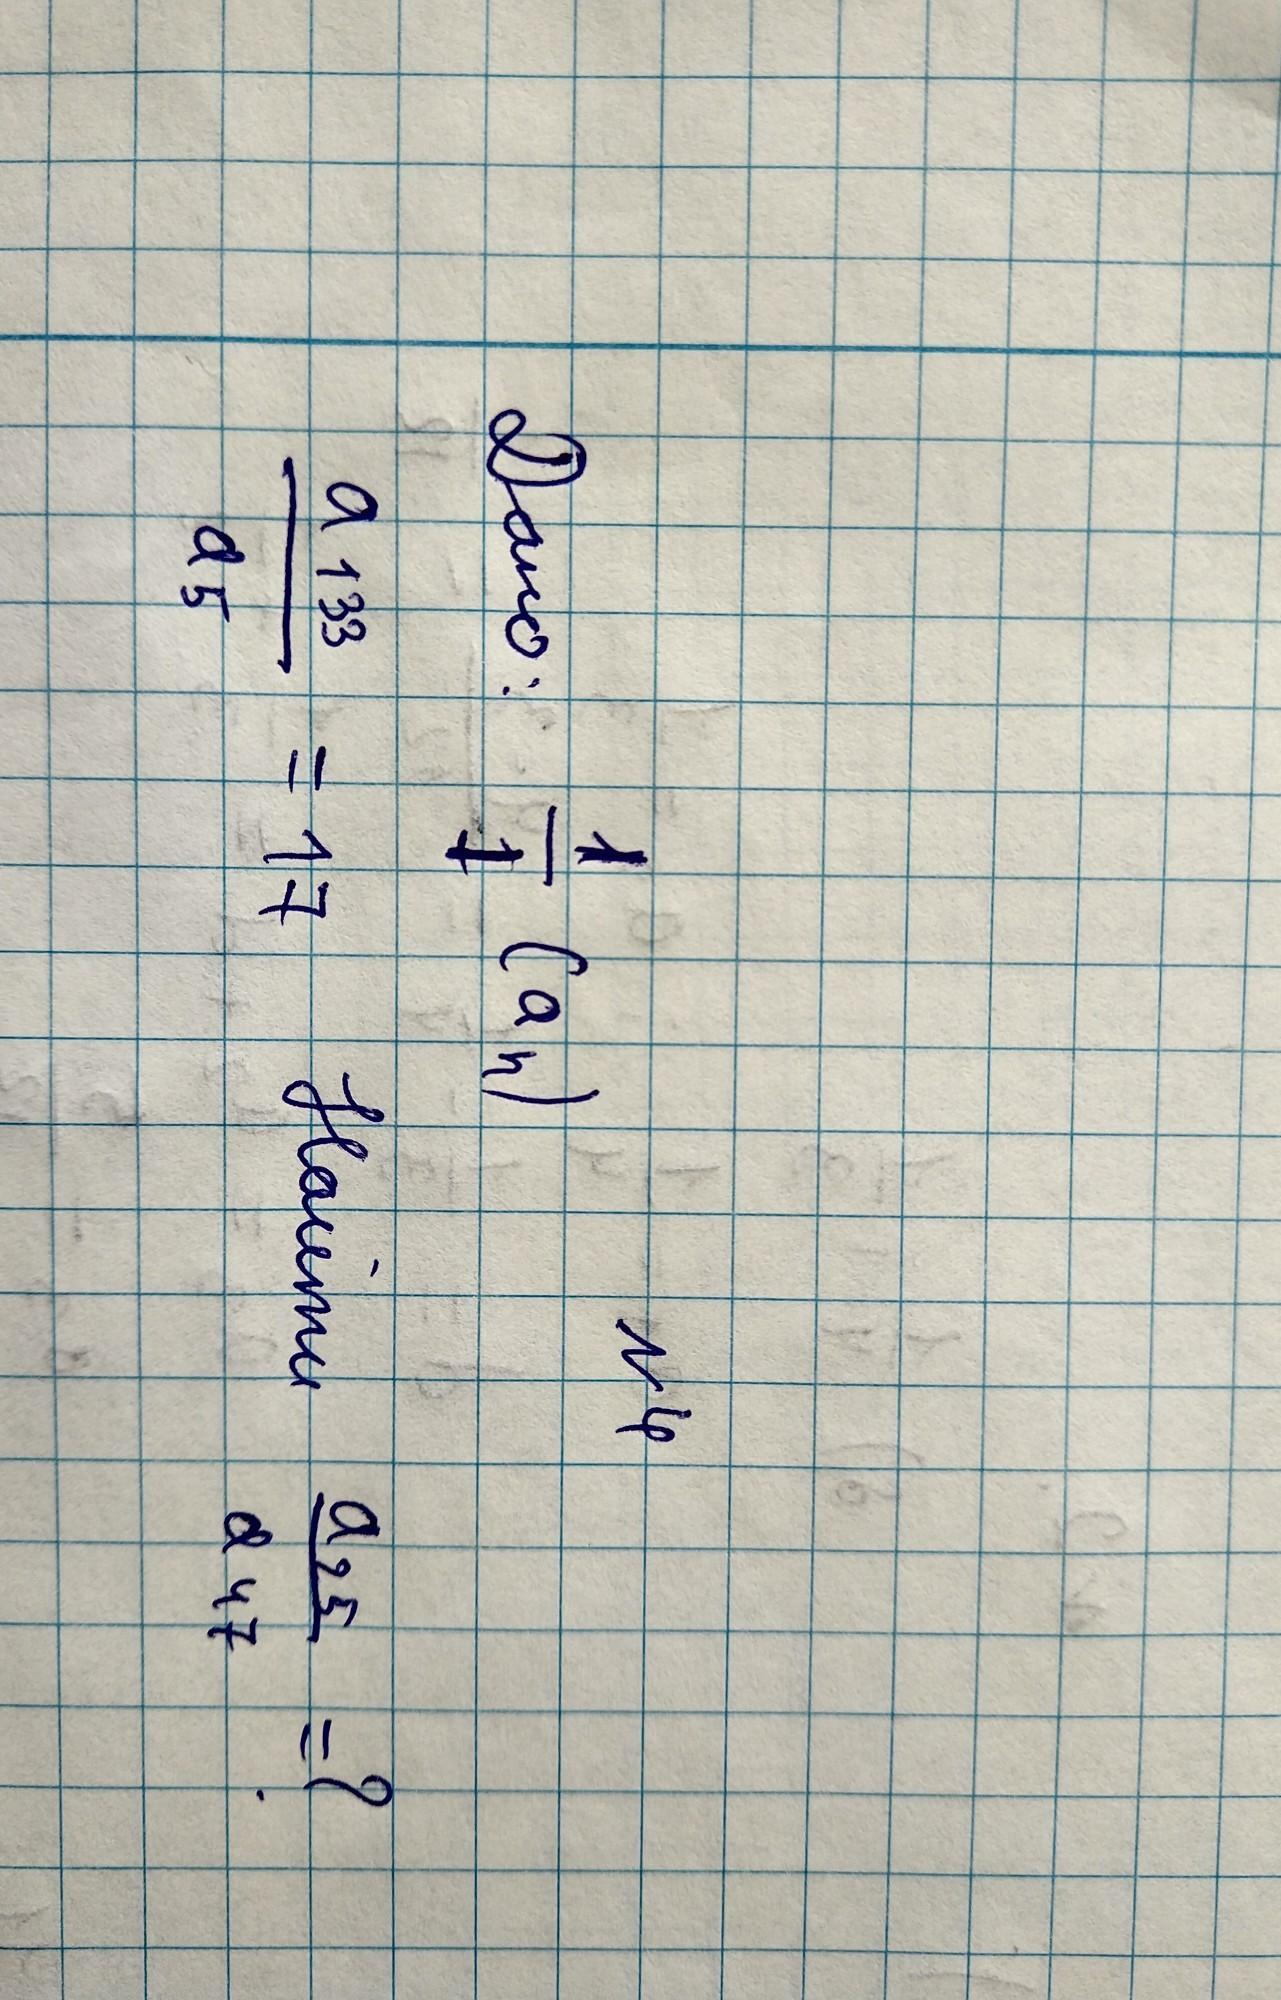 N4
Дано: 1/1 (aₙ)
a₁₃₃/a₅ = 17 Найти a₂₅/a₄₇ = ?